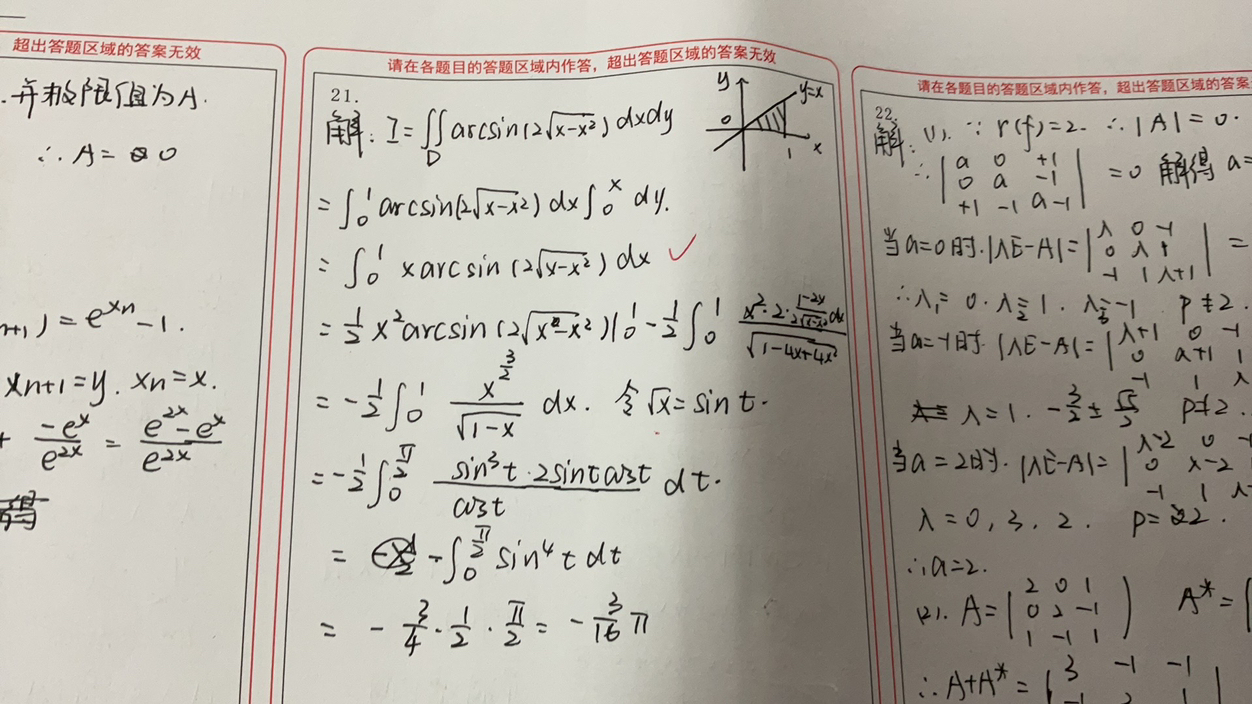 超出答题区域的答案无效
.并极限值为A.
∴A=0
n+1)=e^{xn}-1.
xn+1=y. xn=x.
+ \frac{-e^x}{e^{2x}} = \frac{e^{2x}-e^x}{e^{2x}}
请在各题目的答题区域内作答，超出答题区域的答案无效
21.
解: I=∬_D arcsin(2√(x-x²))dxdy
y y=x
0 1 x
=∫_0^1 arcsin(2√(x-x²))dx∫_0^x dy.
=∫_0^1 xarcsin(2√(x-x²))dx ✓
=\frac{1}{2}x²arcsin(2√(x-x²))|_0^1-\frac{1}{2}∫_0^1 \frac{x²·2·\frac{1-2x}{2\sqrt{x-x²}}dx}{\sqrt{1-4x+4x²}}
=-\frac{1}{2}∫_0^1 \frac{x^{\frac{3}{2}}}{\sqrt{1-x}} dx. 令√x=sint.
=-\frac{1}{2}∫_0^{\frac{π}{2}} \frac{sin³t·2sintcost}{cost} dt.
= -∫_0^{\frac{π}{2}} sin⁴tdt
= -\frac{3}{4}·\frac{1}{2}·\frac{π}{2}=-\frac{3}{16}π
请在各题目的答题区域内作答，超出答题区域的答案
22.
解: (1). ∵r(f)=2. ∴|A|=0.
∴ | a 0 +1
0 a -1
+1 -1 a-1 | =0 解得a=
当a=0时.|λE-A|=| λ 0 -1
0 λ 1
-1 1 λ+1 | =
∴λ₁=0. λ₂=1. λ₃=-1 p≠2.
当a=-1时.|λE-A|=| λ+1 0 -1
0 a+1 1
-1 1 λ
λ=1. p≠2.
当a=2时.|λE-A|=| λ-2 0 -1
0 λ-2 1
-1 1 λ-
λ=0, 3, 2. p=2.
∴a=2.
(2). A=| 2 0 1
0 2 -1
1 -1 1 ) A*=
∴A+A*=| 3 -1 -1
-1 3 1